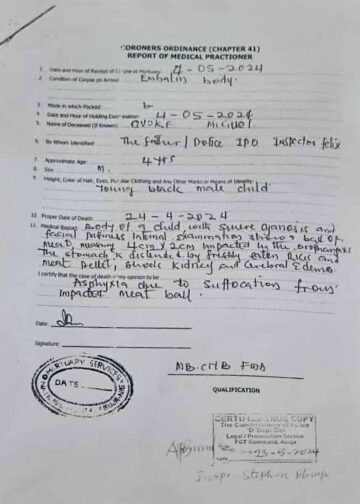 CORONERS ORDINANCE (CHAPTER 41)
REPORT OF MEDICAL PRACTIONER
1. Date and Hour of Receipt of Corpse at Mortuary: 4-05-2024
2. Condition of Corpse on Arrival: Embalm body.
3. Mode in which Packed:
4. Date and Hour of Holding Examination: 4-05-2024
5. Name of Deceased (If Known):
6. By Whom Identified: The father/Police IPO Inspector felix
7. Approximate Age: 4yrs
8. Sex: M.
9. Height, Color of Hair, Eyes, Clothing and Any Other Marks or Means of Identity:
Young black male child
10. Proper Date of Death: 24-4-2024
11. Medical Report: Body of a child with severe cyanosis and
facial puffiness Internal examination shows ball of
meat, measuring 4cm x 2cm impacted in the oropharynx
The stomach is distended by freshly eaten Rice and
meat pellet, shock kidney and cerebral edema.
I certify that the cause of death in my opinion to be
Asphyxia due to suffocation from
impacted meat ball.
Date:
Signature:
MORTUARY SERVICES
DATE
QUALIFICATION
CERTIFIED TRUE COPY
The Commissioner of Police
'D' Dept CID
Legal / Prosecution Section
FCT Command, Abuja
23-5-2024
Inspr. Stephen